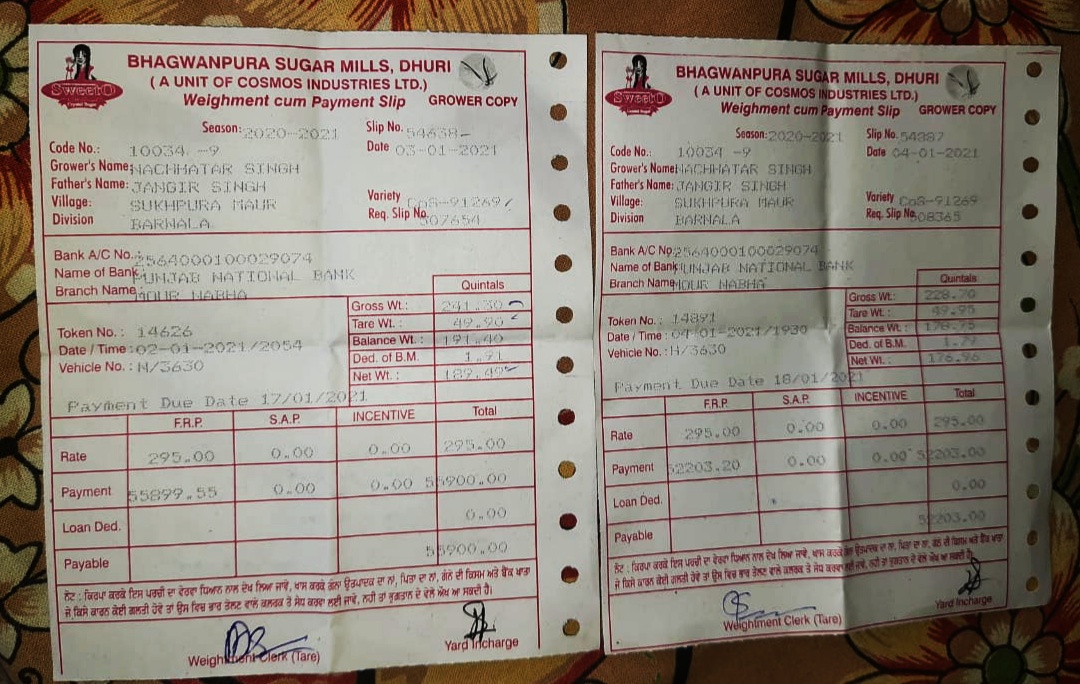 SweetO
BHAGWANPURA SUGAR MILLS, DHURI
( A UNIT OF COSMOS INDUSTRIES LTD.)
Weighment cum Payment Slip GROWER COPY
Season: 2020-2021 Slip No. 54638-
Code No.: 10034 -9 Date 03-01-2021
Grower's Name: NACHHATAR SINGH
Father's Name: JANGIR SINGH
Village: SUKHPURA MAUR Variety CoS-91269
Division BARNALA Req. Slip No. 507654
Bank A/C No.: 2564000100029074
Name of Bank PUNJAB NATIONAL BANK
Branch Name MOUR NABHA
Quintals
Gross Wt.: 241.30
Token No. : 14626 Tare Wt. : 49.90
Date / Time : 02-01-2021/2054 Balance Wt. : 191.40
Vehicle No. : H/3630 Ded. of B.M. 1.91
Net Wt. : 189.49
Payment Due Date 17/01/2021
F.R.P. S.A.P. INCENTIVE Total
Rate 295.00 0.00 0.00 295.00
Payment 55899.55 0.00 0.00 55900.00
Loan Ded. 0.00
Payable 55900.00
ਨੋਟ : ਕਿਰਪਾ ਕਰਕੇ ਇਸ ਪਰਚੀ ਦਾ ਵੇਰਵਾ ਧਿਆਨ ਨਾਲ ਦੇਖ ਲਿਆ ਜਾਵੇ, ਖਾਸ ਕਰਕੇ ਗੰਨਾ ਉਤਪਾਦਕ ਦਾ ਨਾਂ, ਪਿਤਾ ਦਾ ਨਾਂ, ਗੰਨੇ ਦੀ ਕਿਸਮ ਅਤੇ ਬੈਂਕ ਖਾਤਾ
ਜੇ ਕਿਸੇ ਕਾਰਨ ਕੋਈ ਗਲਤੀ ਹੋਵੇ ਤਾਂ ਉਸ ਵਿਚ ਭਾਰ ਤੋਲਣ ਵਾਲੇ ਕਲਰਕ ਤੋਂ ਸੋਧ ਕਰਵਾ ਲਈ ਜਾਵੇ, ਨਹੀਂ ਤਾਂ ਭੁਗਤਾਨ ਦੇ ਵੇਲੇ ਔਖ ਆ ਸਕਦੀ ਹੈ।
Weighment Clerk (Tare) Yard Incharge
SweetO
BHAGWANPURA SUGAR MILLS, DHURI
( A UNIT OF COSMOS INDUSTRIES LTD.)
Weighment cum Payment Slip GROWER COPY
Season: 2020-2021 Slip No. 54887
Code No.: 10034 -9 Date 04-01-2021
Grower's Name: NACHHATAR SINGH
Father's Name: JANGIR SINGH
Village: SUKHPURA MAUR Variety CoS-91269
Division BARNALA Req. Slip No. 508365
Bank A/C No. 2564000100029074
Name of Bank PUNJAB NATIONAL BANK
Branch Name MOUR NABHA
Quintals
Gross Wt.: 228.70
Token No. : 14891 Tare Wt. : 49.95
Date / Time : 04-01-2021/1930 Balance Wt. : 178.75
Vehicle No. : H/3630 Ded. of B.M. 1.79
Net Wt. : 176.96
Payment Due Date 18/01/2021
F.R.P. S.A.P. INCENTIVE Total
Rate 295.00 0.00 0.00 295.00
Payment 52203.20 0.00 0.00 52203.00
Loan Ded. 0.00
Payable 52203.00
ਨੋਟ : ਕਿਰਪਾ ਕਰਕੇ ਇਸ ਪਰਚੀ ਦਾ ਵੇਰਵਾ ਧਿਆਨ ਨਾਲ ਦੇਖ ਲਿਆ ਜਾਵੇ, ਖਾਸ ਕਰਕੇ ਗੰਨਾ ਉਤਪਾਦਕ ਦਾ ਨਾਂ, ਪਿਤਾ ਦਾ ਨਾਂ, ਗੰਨੇ ਦੀ ਕਿਸਮ ਅਤੇ ਬੈਂਕ ਖਾਤਾ
ਜੇ ਕਿਸੇ ਕਾਰਨ ਕੋਈ ਗਲਤੀ ਹੋਵੇ ਤਾਂ ਉਸ ਵਿਚ ਭਾਰ ਤੋਲਣ ਵਾਲੇ ਕਲਰਕ ਤੋਂ ਸੋਧ ਕਰਵਾ ਲਈ ਜਾਵੇ, ਨਹੀਂ ਤਾਂ ਭੁਗਤਾਨ ਦੇ ਵੇਲੇ ਔਖ ਆ ਸਕਦੀ ਹੈ।
Weighment Clerk (Tare) Yard Incharge